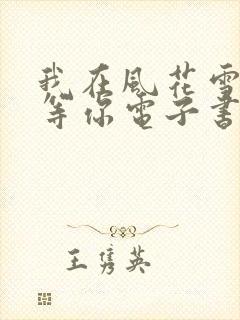 我在風花雪
等你電子書
王隽英